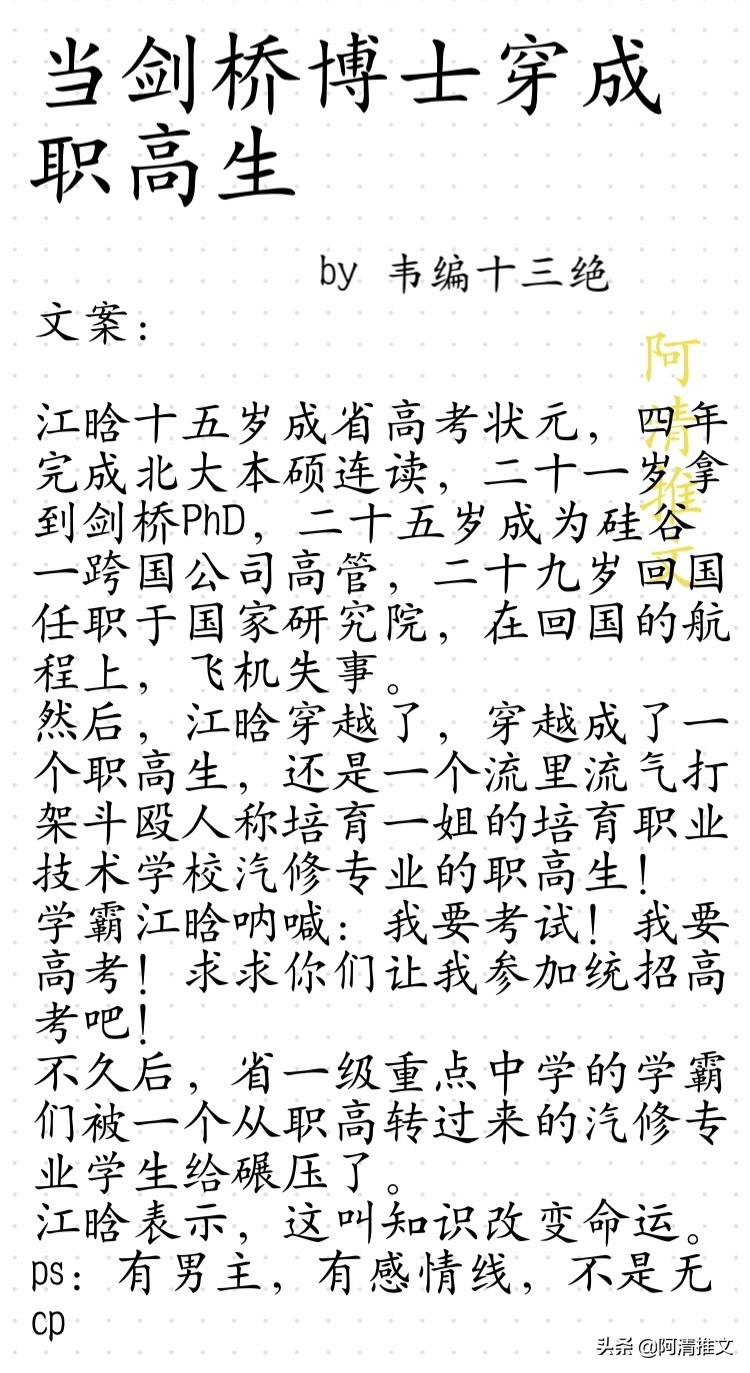 当剑桥博士穿成
职高生
by 韦编十三绝
文案：
阿清推文
江晗十五岁成省高考状元，四年
完成北大本硕连读，二十一岁拿
到剑桥PhD，二十五岁成为硅谷
一跨国公司高管，二十九岁回国
任职于国家研究院，在回国的航
程上，飞机失事。
然后，江晗穿越了，穿越成了一
个职高生，还是一个流里流气打
架斗殴人称培育一姐的培育职业
技术学校汽修专业的职高生！
学霸江晗呐喊：我要考试！我要
高考！求求你们让我参加统招高
考吧！
不久后，省一级重点中学的学霸
们被一个从职高转过来的汽修专
业学生给碾压了。
江晗表示，这叫知识改变命运。
ps：有男主，有感情线，不是无
cp
头条 @阿清推文